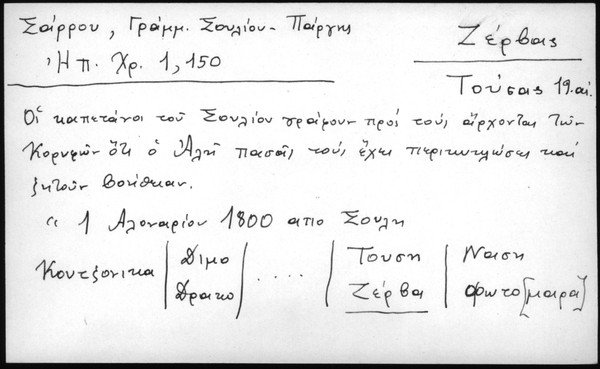 Σάρρου, Γράμμ. Σουλίου - Πάργης
Ἠπ. Χρ. 1, 150
Ζέρβας
Τούσας 19. αἰ.
Οἱ καπετάνοι τοῦ Σουλίου γράφουν πρός τούς ἄρχοντας τῶν
Κορυφῶν ὅτι ὁ Ἀλῆ πασᾶς τούς ἔχει περικυκλώσει καί
ζητοῦν βοήθειαν.
" 1 Αλοναρίου 1800 απο Σουλη
Κουτζονικα | Διμο | .... | Τουση | Ναση
Δρακο | Ζέρβα | Φωτο[μαρα]